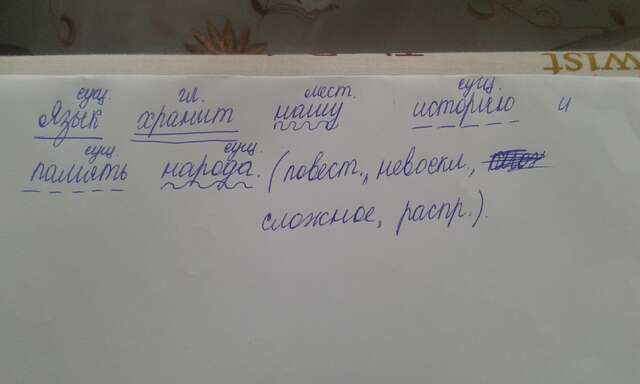 сущ. гл. мест. сущ.
Язык хранит нашу историю и
сущ. сущ.
память народа. (повест., невоскл.,
сложное, распр.).
wist